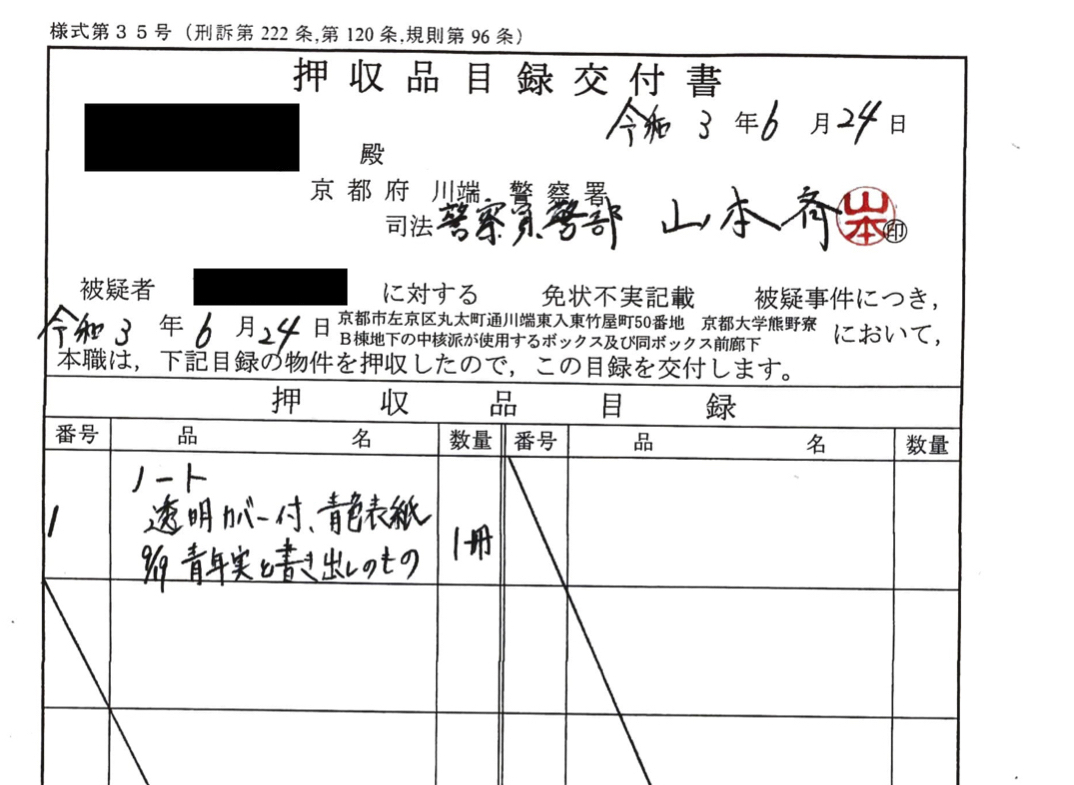 様式第35号（刑訴第222条,第120条,規則第96条）
押収品目録交付書
令和3年6月24日
殿
京都府 川端 警察署
司法警察員警部 山本 斉 山本 印
被疑者 に対する 免状不実記載 被疑事件につき，
令和3年6月24日 京都市左京区丸太町通川端東入東竹屋町50番地 京都大学熊野寮
B棟地下の中核派が使用するボックス及び同ボックス前廊下 において，
本職は，下記目録の物件を押収したので，この目録を交付します。
押収品目録
番号 品名 数量 番号 品名 数量
ノート
1 透明カバー付、青色表紙 1冊
9/19 青年実と書き出しのもの